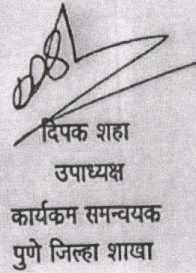 दिपक शहा
उपाध्यक्ष
कार्यकम समन्वयक
पुणे जिल्हा शाखा